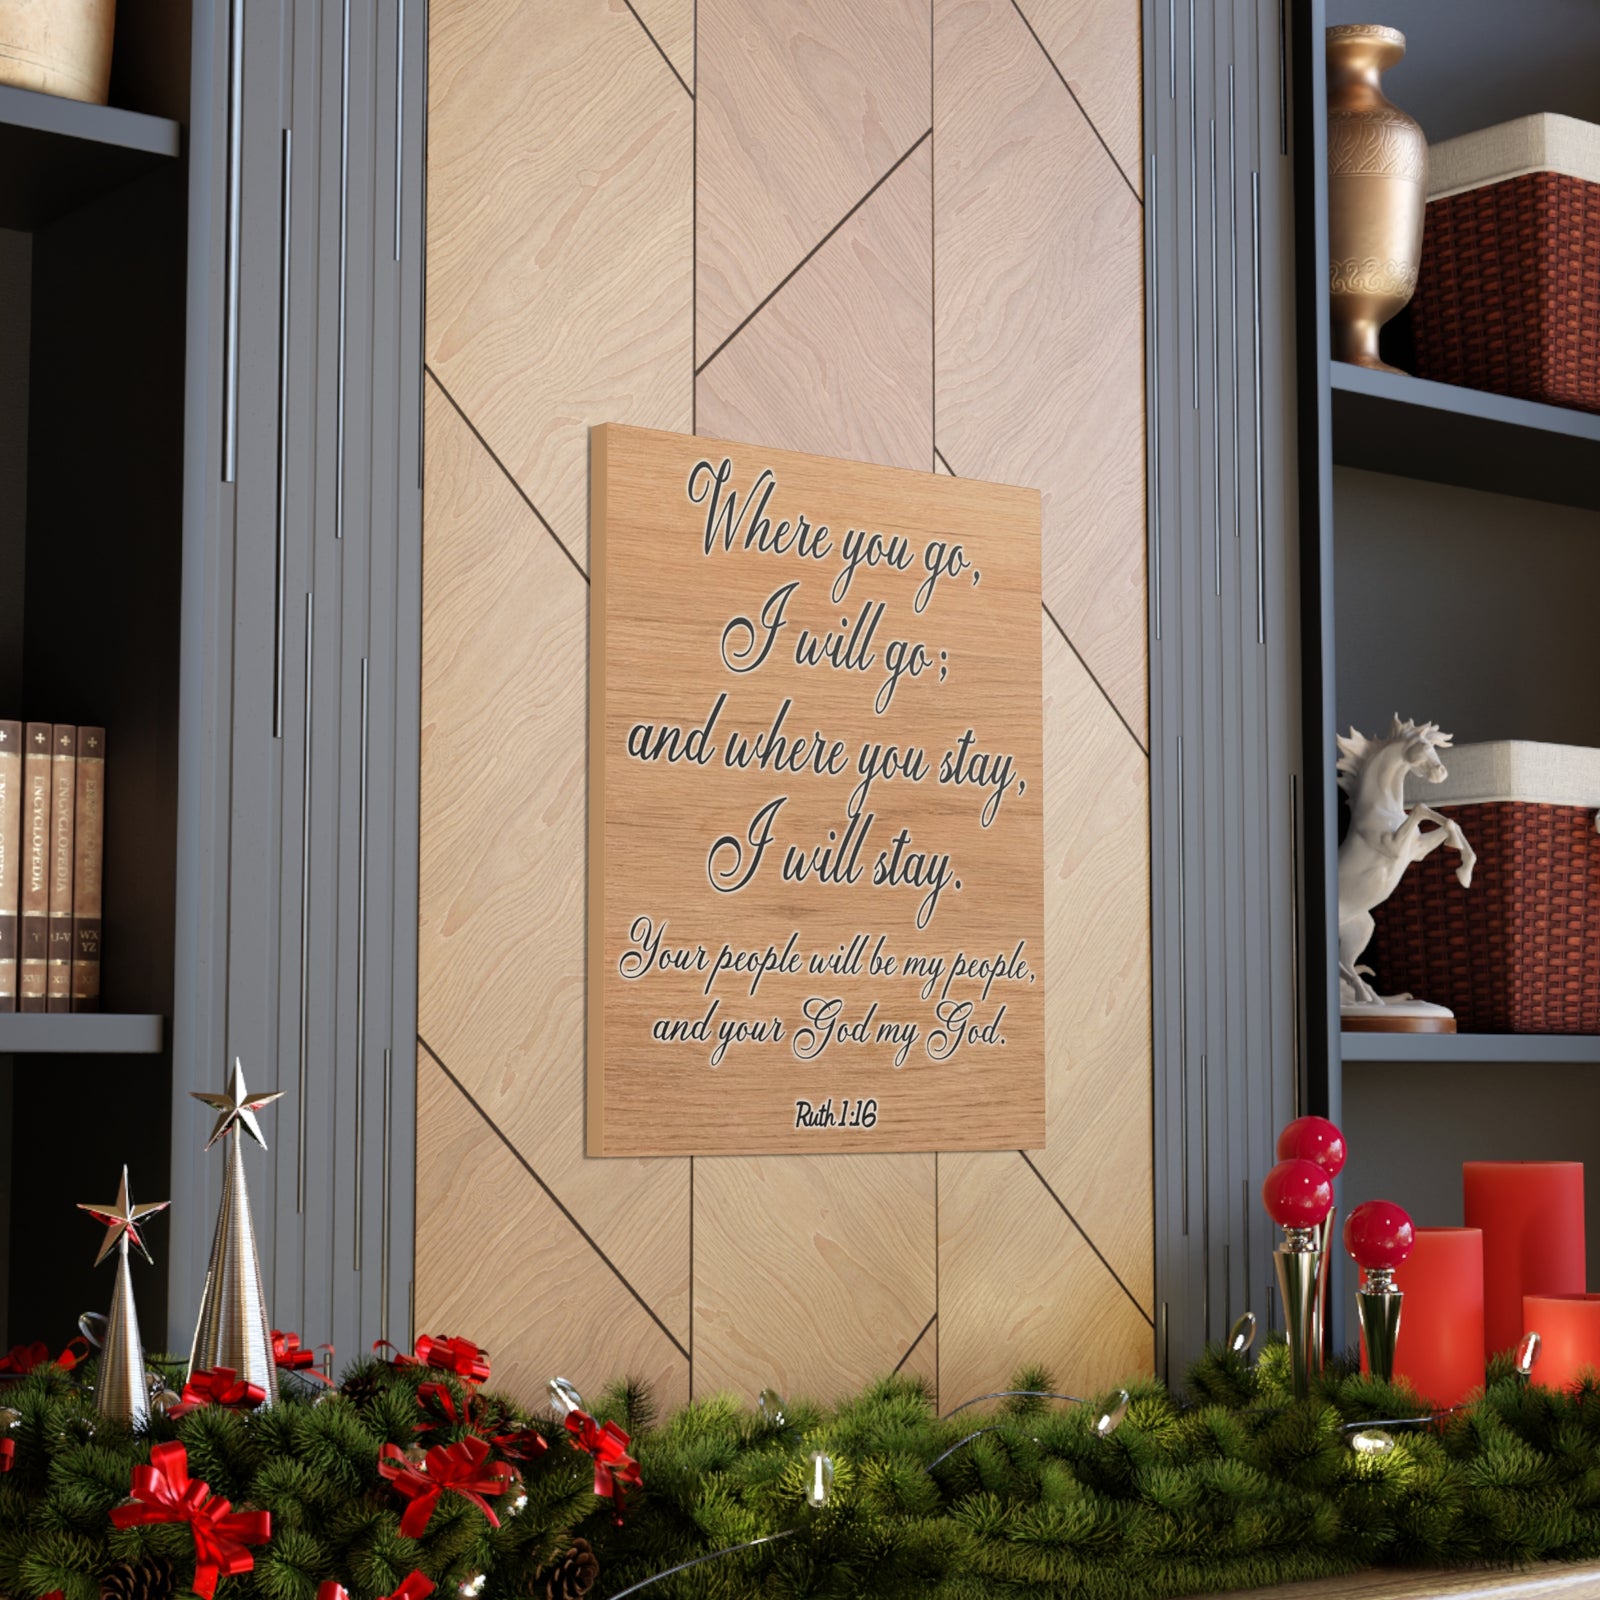 Where you go,
I will go;
and where you stay,
I will stay.
Your people will be my people,
and your God my God.
Ruth 1:16
ENCYCLOPEDIA
ENCYCLOPEDIA
U-V
WX
YZ